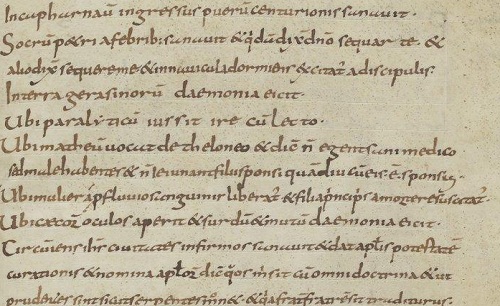 Incapharnaū ingressus puerū centurionis sanauit.
Socrū petri a febrib; sanauit & qdā dix dno sequar te. &
alio dix sequere me & in nauicula dormiens excitat̄ a discipulis.
In terra gerasinorū daemonia eicit.
Ubi paralyticū iussit ire cū lecto.
Ubi matheū uocat de theloneo & dic n̄ egent sani medico
sed male habentes & n̄ ieiunant filii sponsi quādiu cū eis ē sponsus.
Ubi mulierē a pfluuio sanguinis liberat & filiā principis a morte resuscitat.
Ubi caecorū oculos aperit & surdū & mutū daemonia eicit.
Circuiens ihs ciuitates infirmos sanauit & dat aplis potestatē
curationis & nomina aplorū dic quos misit cū omni doctrina & ut
prudentes sint sicut serpentes & qa frat fratrē sit traditurus.